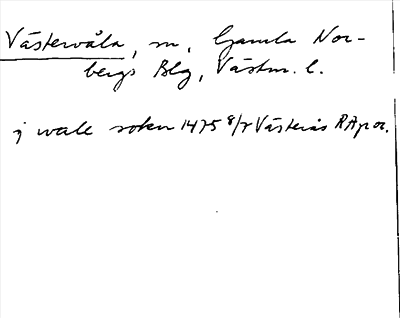 Västervåla, sn, Gamla Nor-
bergs Blg, Västm. l.
j wale sokn 1475 8/2 Västerås RApor.